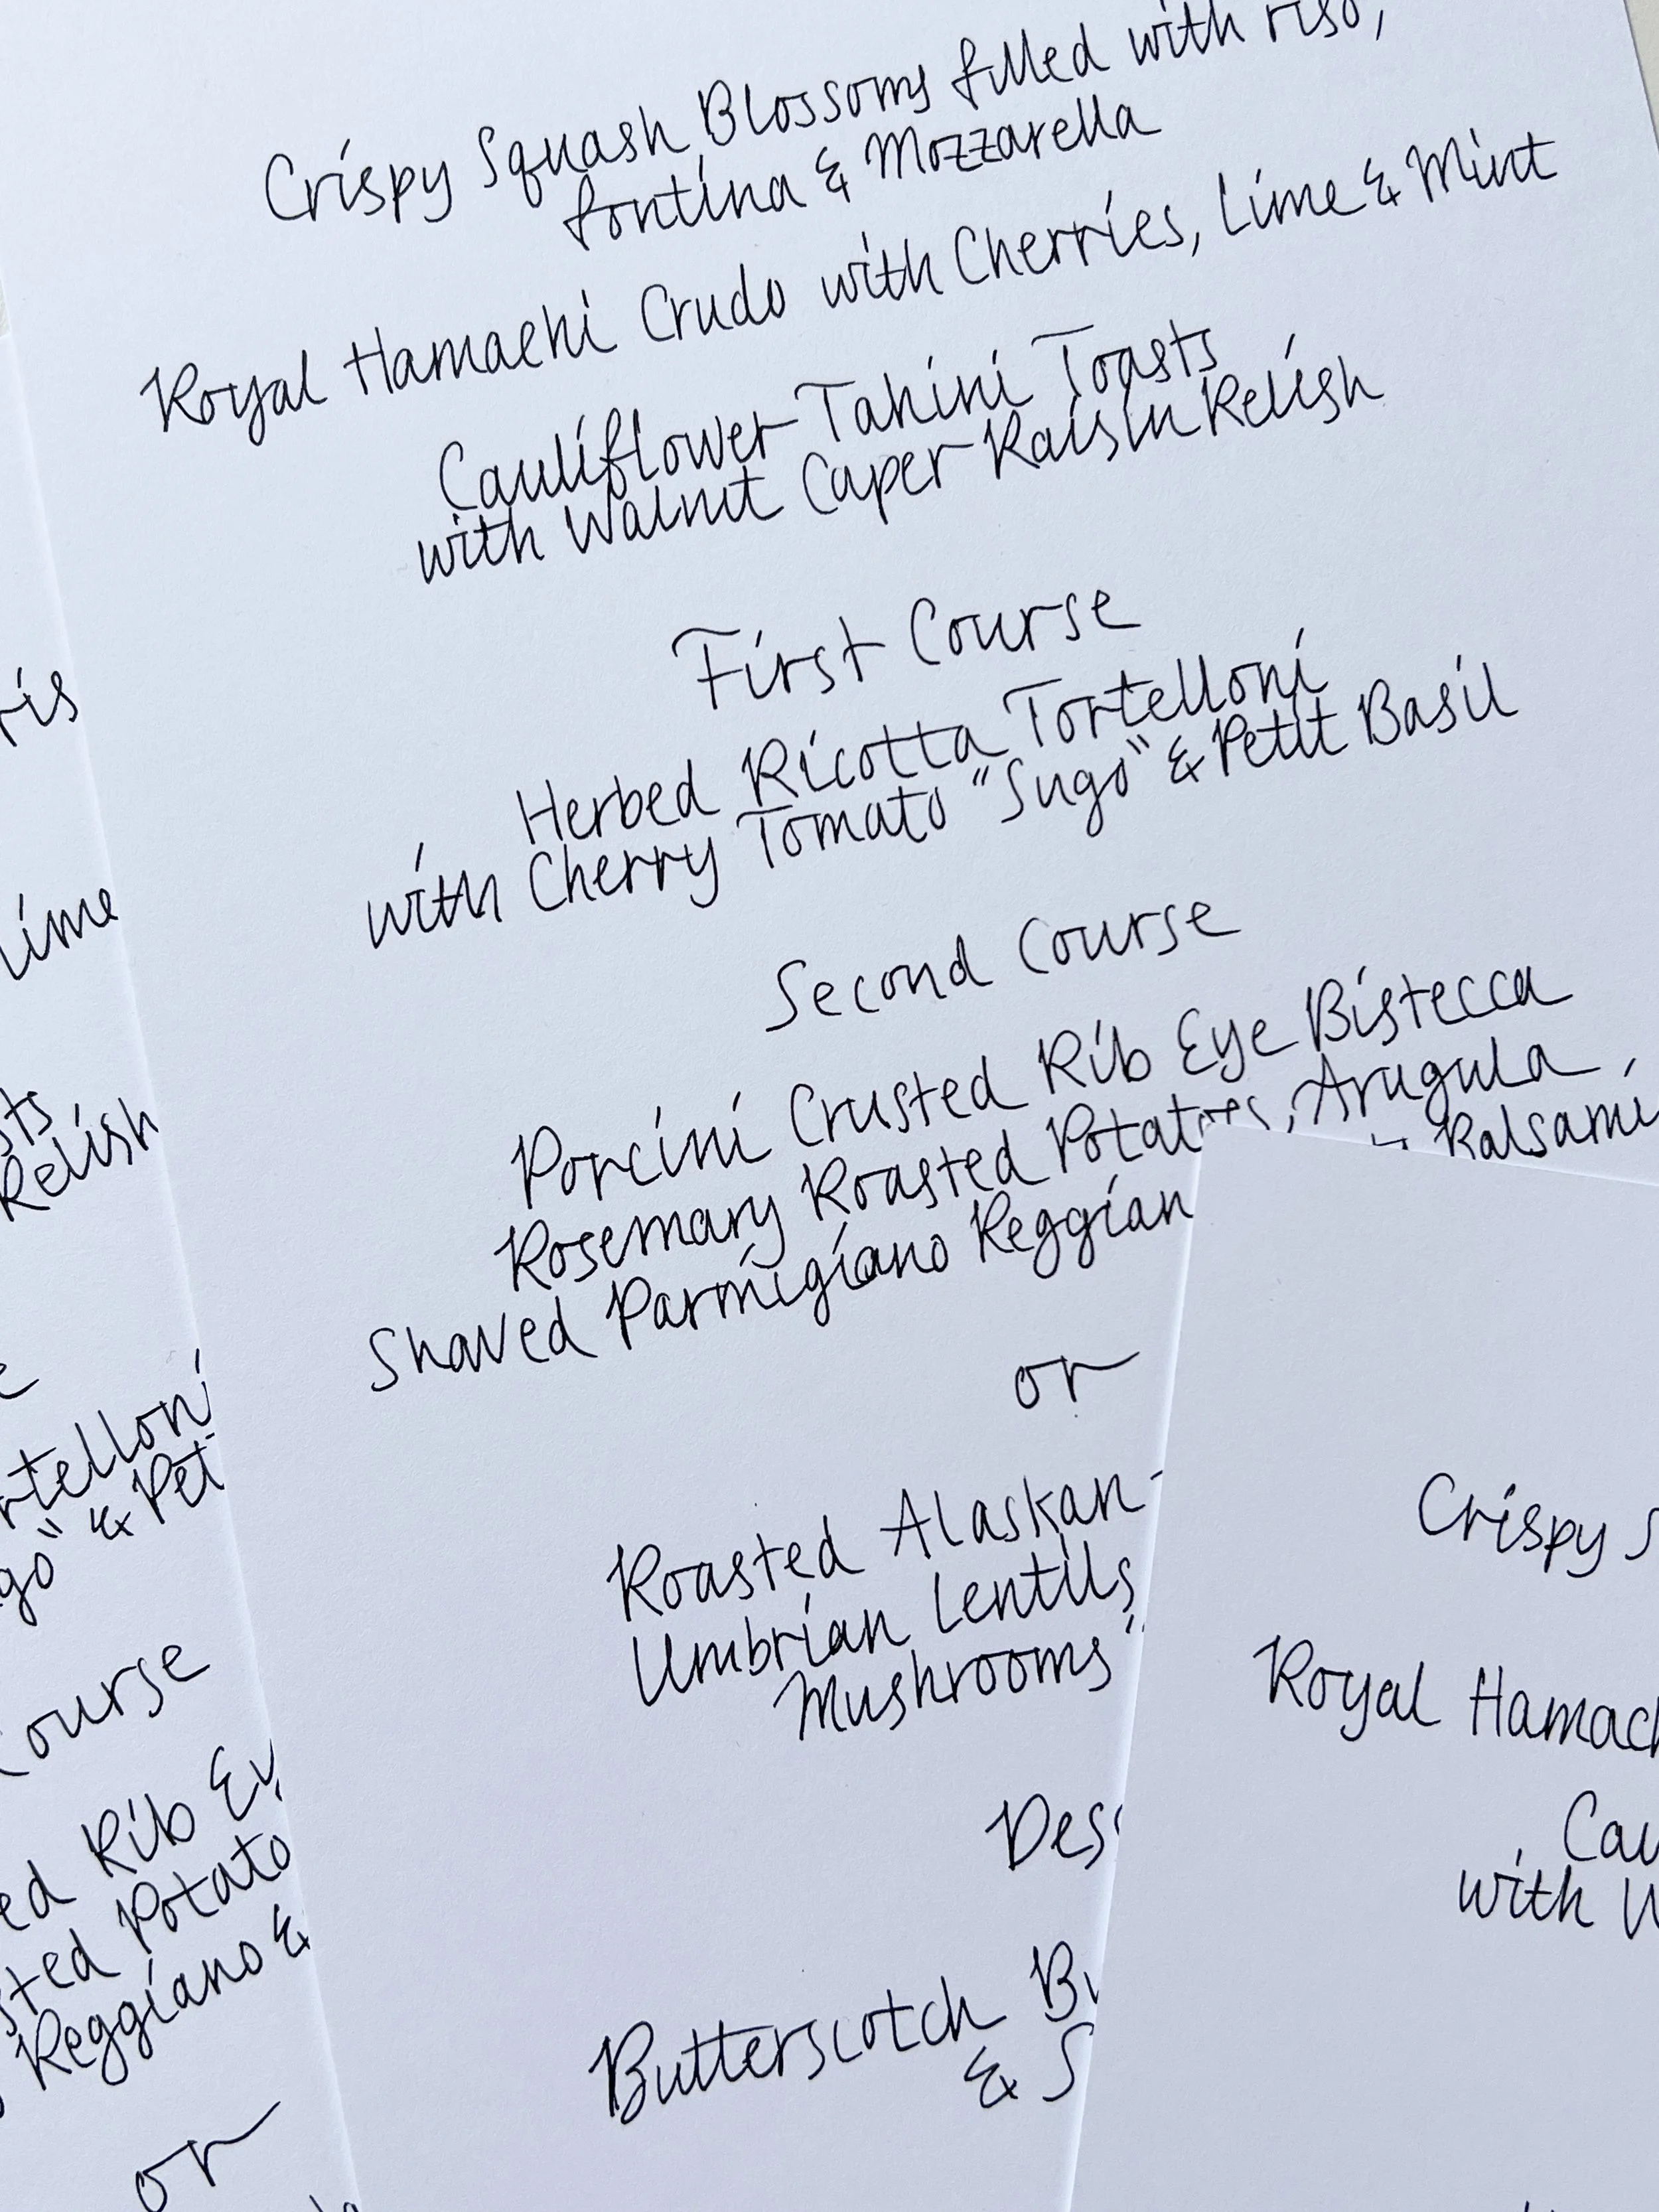 Crispy Squash Blossoms filled with riso,
fontina & Mozzarella
Royal Hamachi Crudo with Cherries, Lime & Mint
Cauliflower Tahini Toasts
with Walnut Caper Raisin Relish
First Course
Herbed Ricotta Tortelloni
with Cherry Tomato "Sugo" & Petit Basil
Second Course
Porcini Crusted Rib Eye Bistecca
Rosemary Roasted Potatoes, Arugula,
Shaved Parmigiano Reggian Balsami
or
Roasted Alaskan
Umbrian Lentils,
Mushrooms
Des
Butterscotch Bu
& S
ris
Lime
sts
Relish
e
rtelloni
go" & Pet
Course
ed Rib Ey
sted Potato
Reggiano &
or
Crispy S
Royal Hamach
Cau
with W